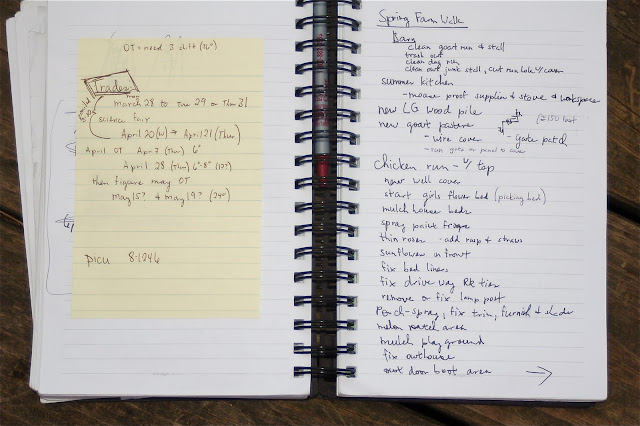 OT = need 3 shift (36°)
Trades
March 28 to Tue 29 or Thu 31
science fair
April 20 (W) → April 21 (Thur)
April OT Apr 7 (Thu) 6°
April 28 (Thu) 6°-8° (10?)
then figure may OT
May 15? + May 19? (24°)
PICU 8-1246
Spring Farm Work
Barn
clean goat run & stall
trash out
clean dog run
clean out junk stall, cut run hole w/ cover
summer kitchen
- mouse proof supplies & stove & workspace
new LG wood pile
new goat pasture
- wire cover - gate patch
- run gate or panel to cover
chicken run - w/ top
new well cover
start girls flower bed (picking bed)
mulch house beds
spray paint frogs
thin roses - add rasp & straws
sunflower in front
fix bed liners
fix drive way RR ties
remove or fix lamp post
Porch - spray, fix trim, furnish & shade
melon patch area
mulch playground
fix outhouse
out door boot area →